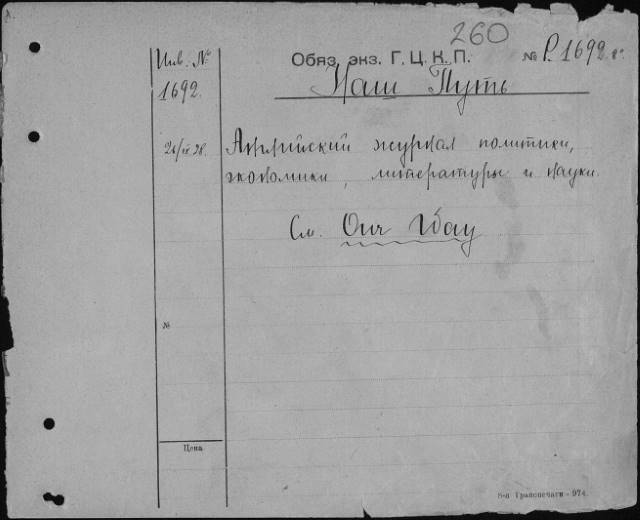 260
Инв. №
1692.
Обяз. экз. Г. Ц. К. П.
№ Р. 1692
Наш Путь
Английский журнал политики,
экономики, литературы и науки.
См. Our Way
№
Цена
Трапопечати - 974.